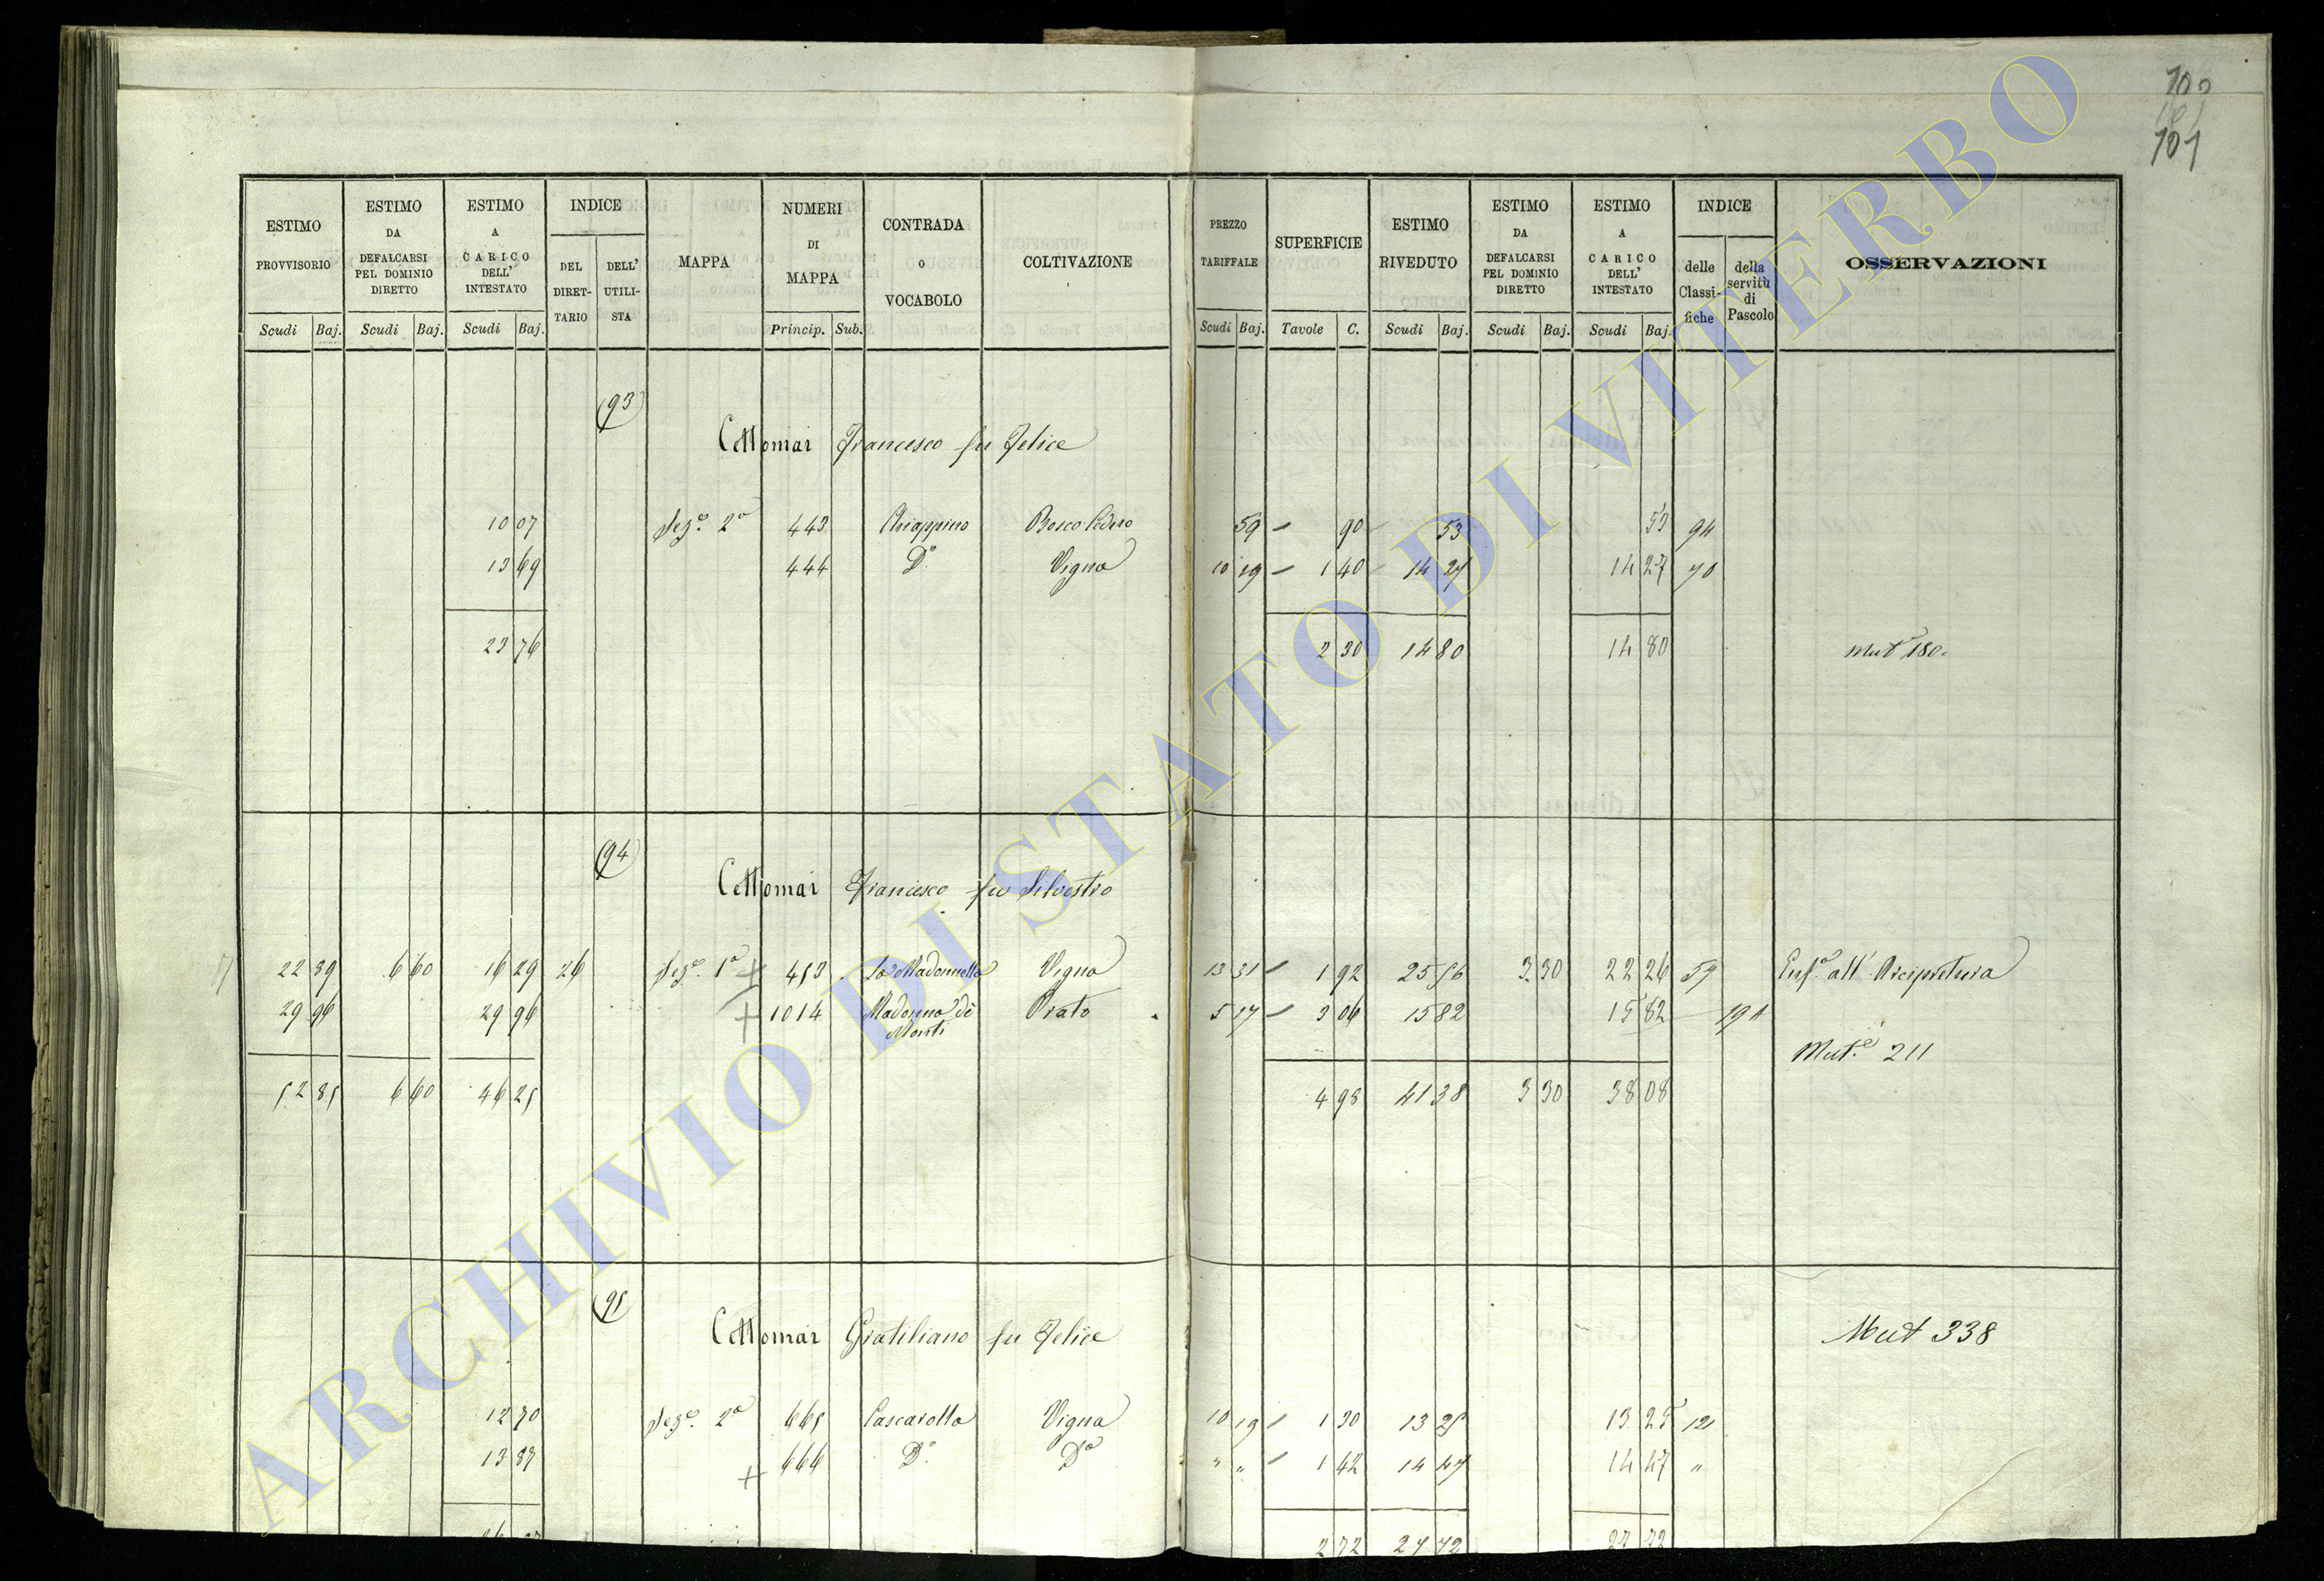 100
101
101
ESTIMO PROVVISORIO Scudi Baj. ESTIMO DA DEFALCARSI PEL DOMINIO DIRETTO Scudi Baj. ESTIMO A CARICO DELL' INTESTATO Scudi Baj. INDICE DEL DIRETTARIO DELL' UTILISTA MAPPA NUMERI DI MAPPA Princip. Sub. CONTRADA O VOCABOLO COLTIVAZIONE PREZZO TARIFFALE Scudi Baj. SUPERFICIE Tavole C. ESTIMO RIVEDUTO Scudi Baj. ESTIMO DA DEFALCARSI PEL DOMINIO DIRETTO Scudi Baj. ESTIMO A CARICO DELL' INTESTATO Scudi Baj. INDICE delle Classifiche della servitù di Pascolo OSSERVAZIONI
(93)
Cettomai Francesco fu Felice
10 07 Seze. 2a 443 Chiappino Bosco Ceduo 59 – 90 53 53 94
13 69 444 Do. Vigna 10 19 – 1 40 14 27 14 27 70
23 76 2 30 14 80 14 80 Mut 180.
(94)
Cettomai Francesco fu Silvestro
22 89 6 60 16 29 26 Seze. 1a + 453 La Madonnella Vigna 13 31 1 92 25 56 3 30 22 26 57 Enfa. all' Arcipretura
29 96 29 96 + 1014 Madonna di Monti Prato 5 17 – 3 06 15 82 15 82 191
Mute. 211
52 85 6 60 46 25 4 98 41 38 3 30 38 08
(95)
Cettomai Gratiliano fu Felice
Mut 338
12 70 Seze. 2a 665 Cascarolla Vigna 10 19 1 30 13 25 13 25 121
13 87 + 666 Do. Da " " 1 42 14 47 14 47 "
2 72 27 72 27 72
ARCHIVIO DI STATO DI VITERBO